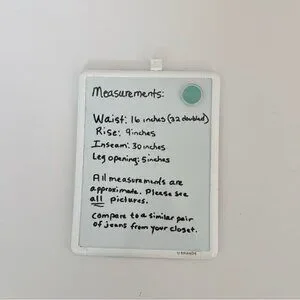 Measurements:
Waist: 16 inches (32 doubled)
Rise: 9inches
Inseam: 30 inches
Leg opening: 5inches
All measurements are
approximate. Please see
all pictures.
Compare to a similar pair
of jeans from your closet.
U BRANDS